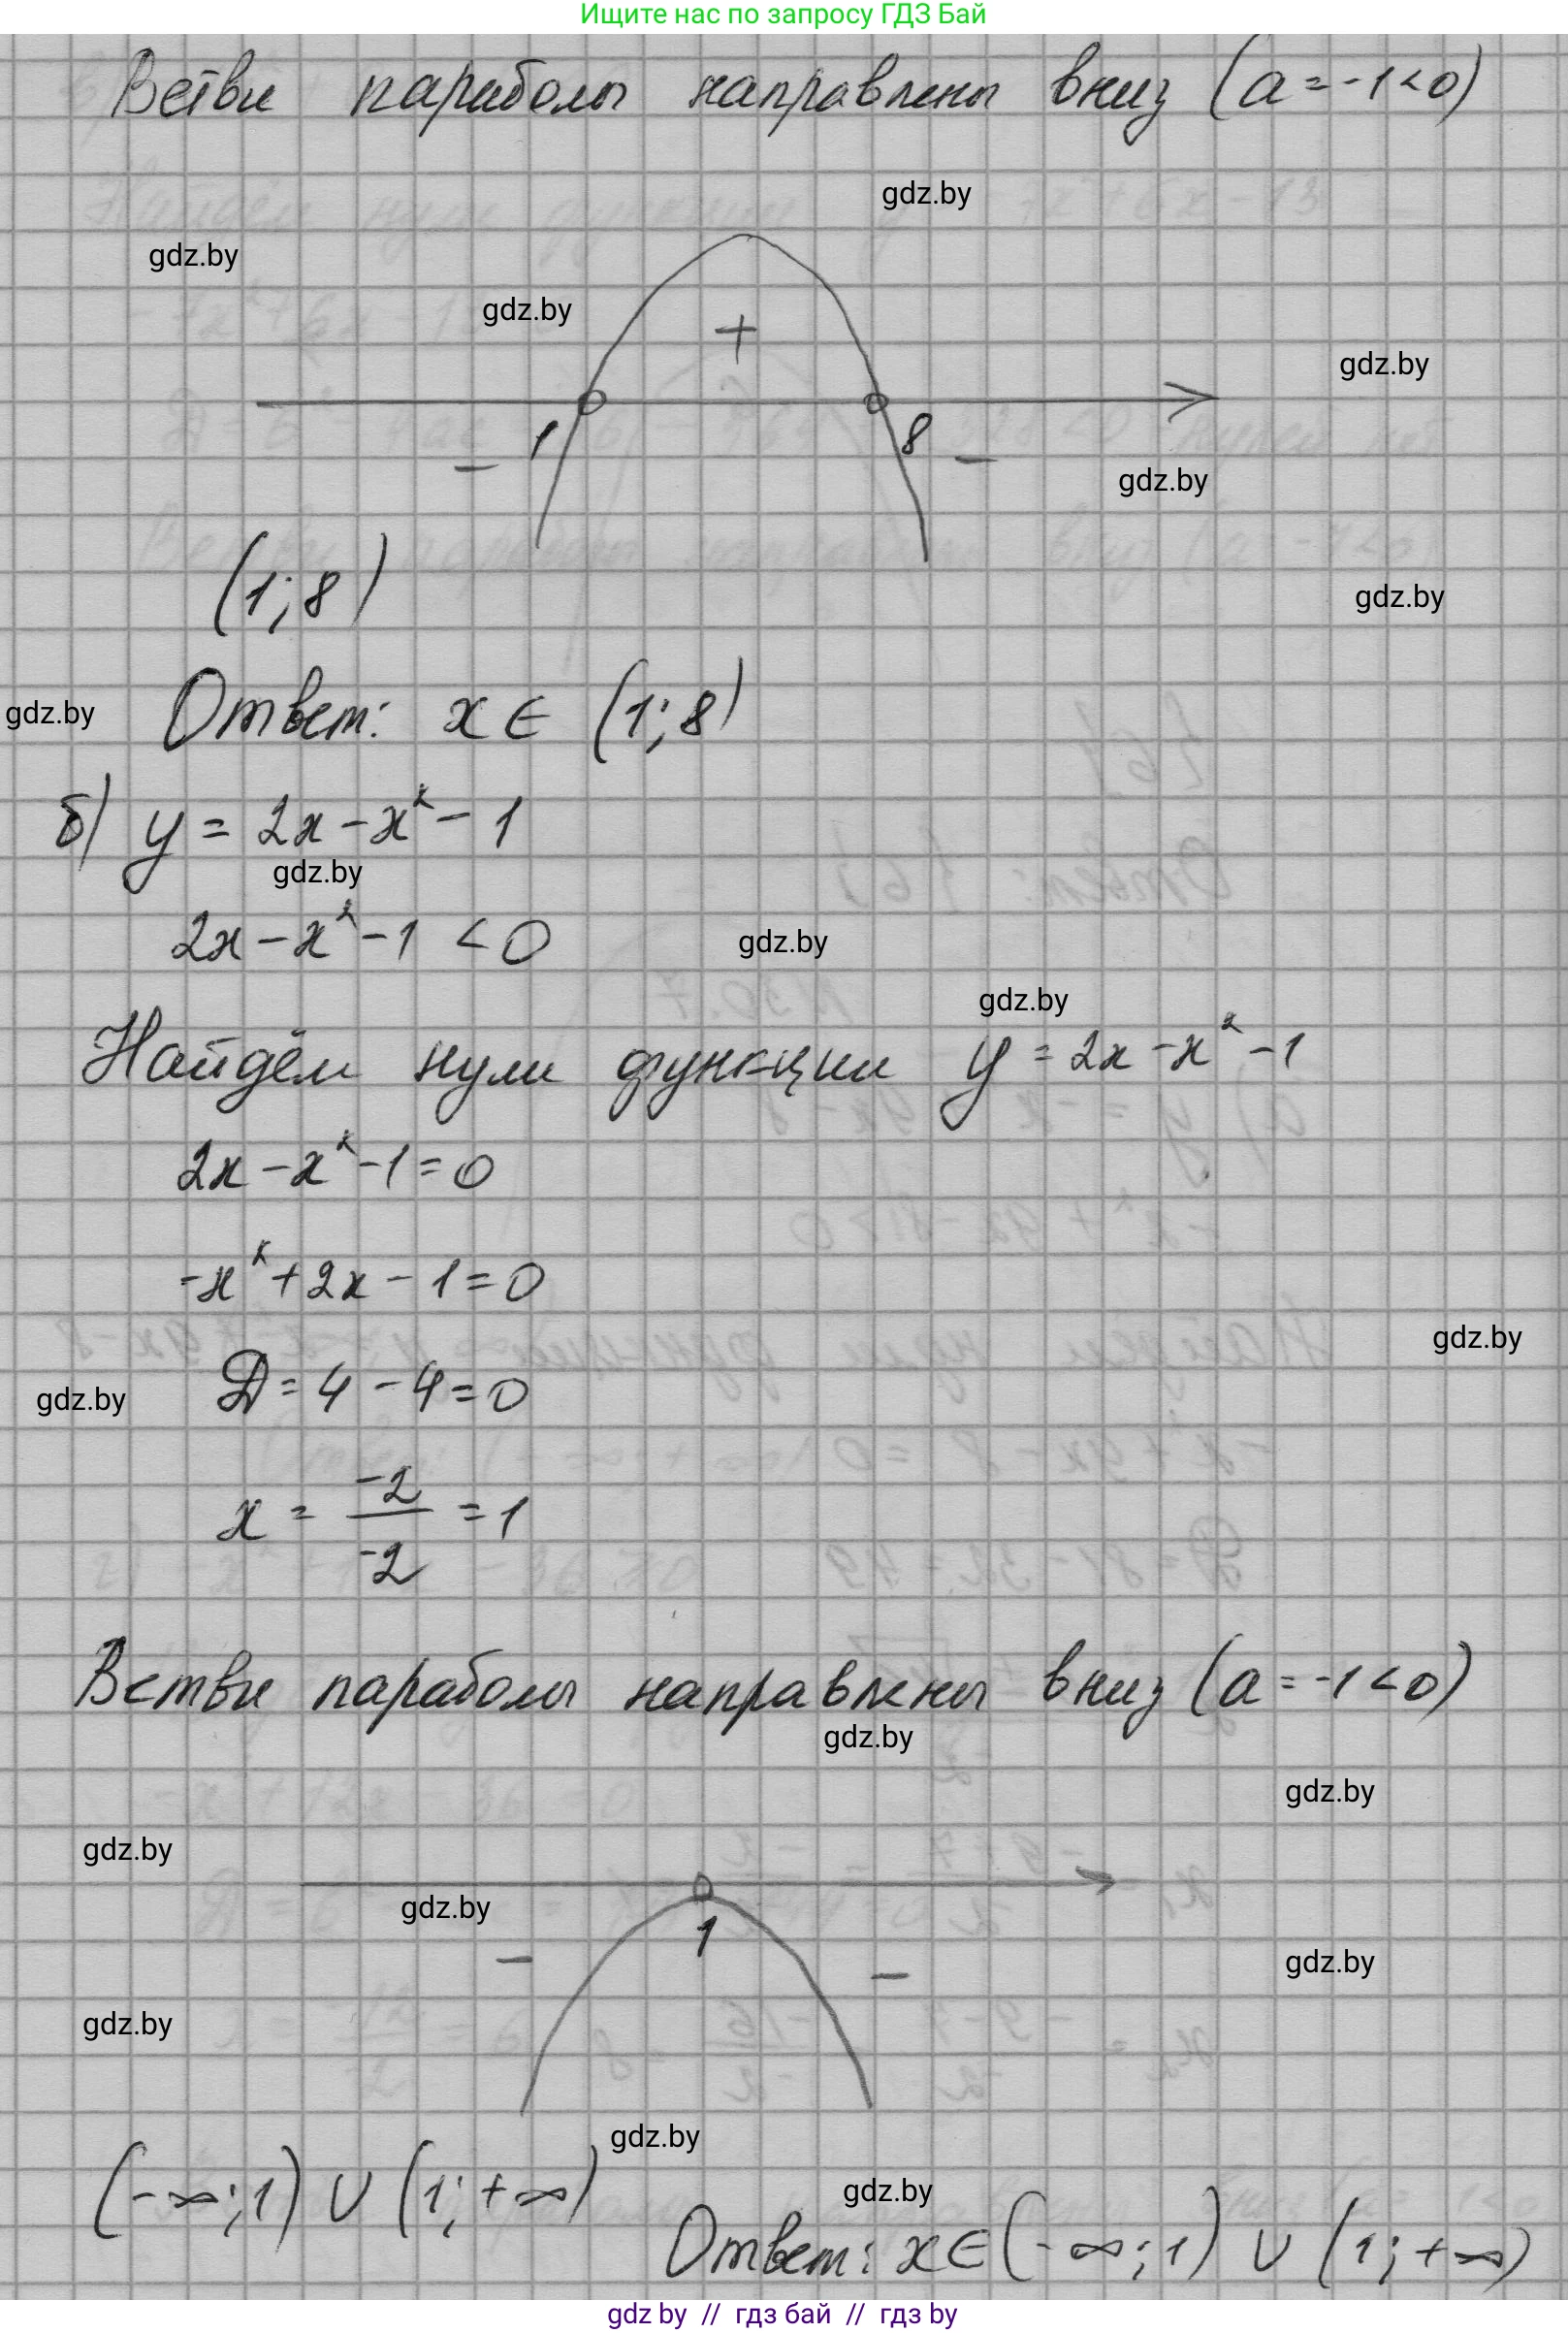 Ищите нас по запросу ГДЗ Бай
Ветви параболы направлены вниз (a = -1 < 0)
gdz.by
gdz.by
gdz.by
+
gdz.by
1
8
-
-
gdz.by
(1; 8)
gdz.by
Ответ: x ∈ (1; 8)
gdz.by
б) y = 2x - x² - 1
gdz.by
2x - x² - 1 < 0
gdz.by
gdz.by
Найдём нули функции y = 2x - x² - 1
2x - x² - 1 = 0
-x² + 2x - 1 = 0
gdz.by
D = 4 - 4 = 0
gdz.by
x = -2/-2 = 1
Ветви параболы направлены вниз (a = -1 < 0)
gdz.by
gdz.by
gdz.by
gdz.by
1
-
-
gdz.by
gdz.by
gdz.by
(-∞; 1) ∪ (1; +∞)
gdz.by
Ответ: x ∈ (-∞; 1) ∪ (1; +∞)
gdz by // гдз бай // гдз by